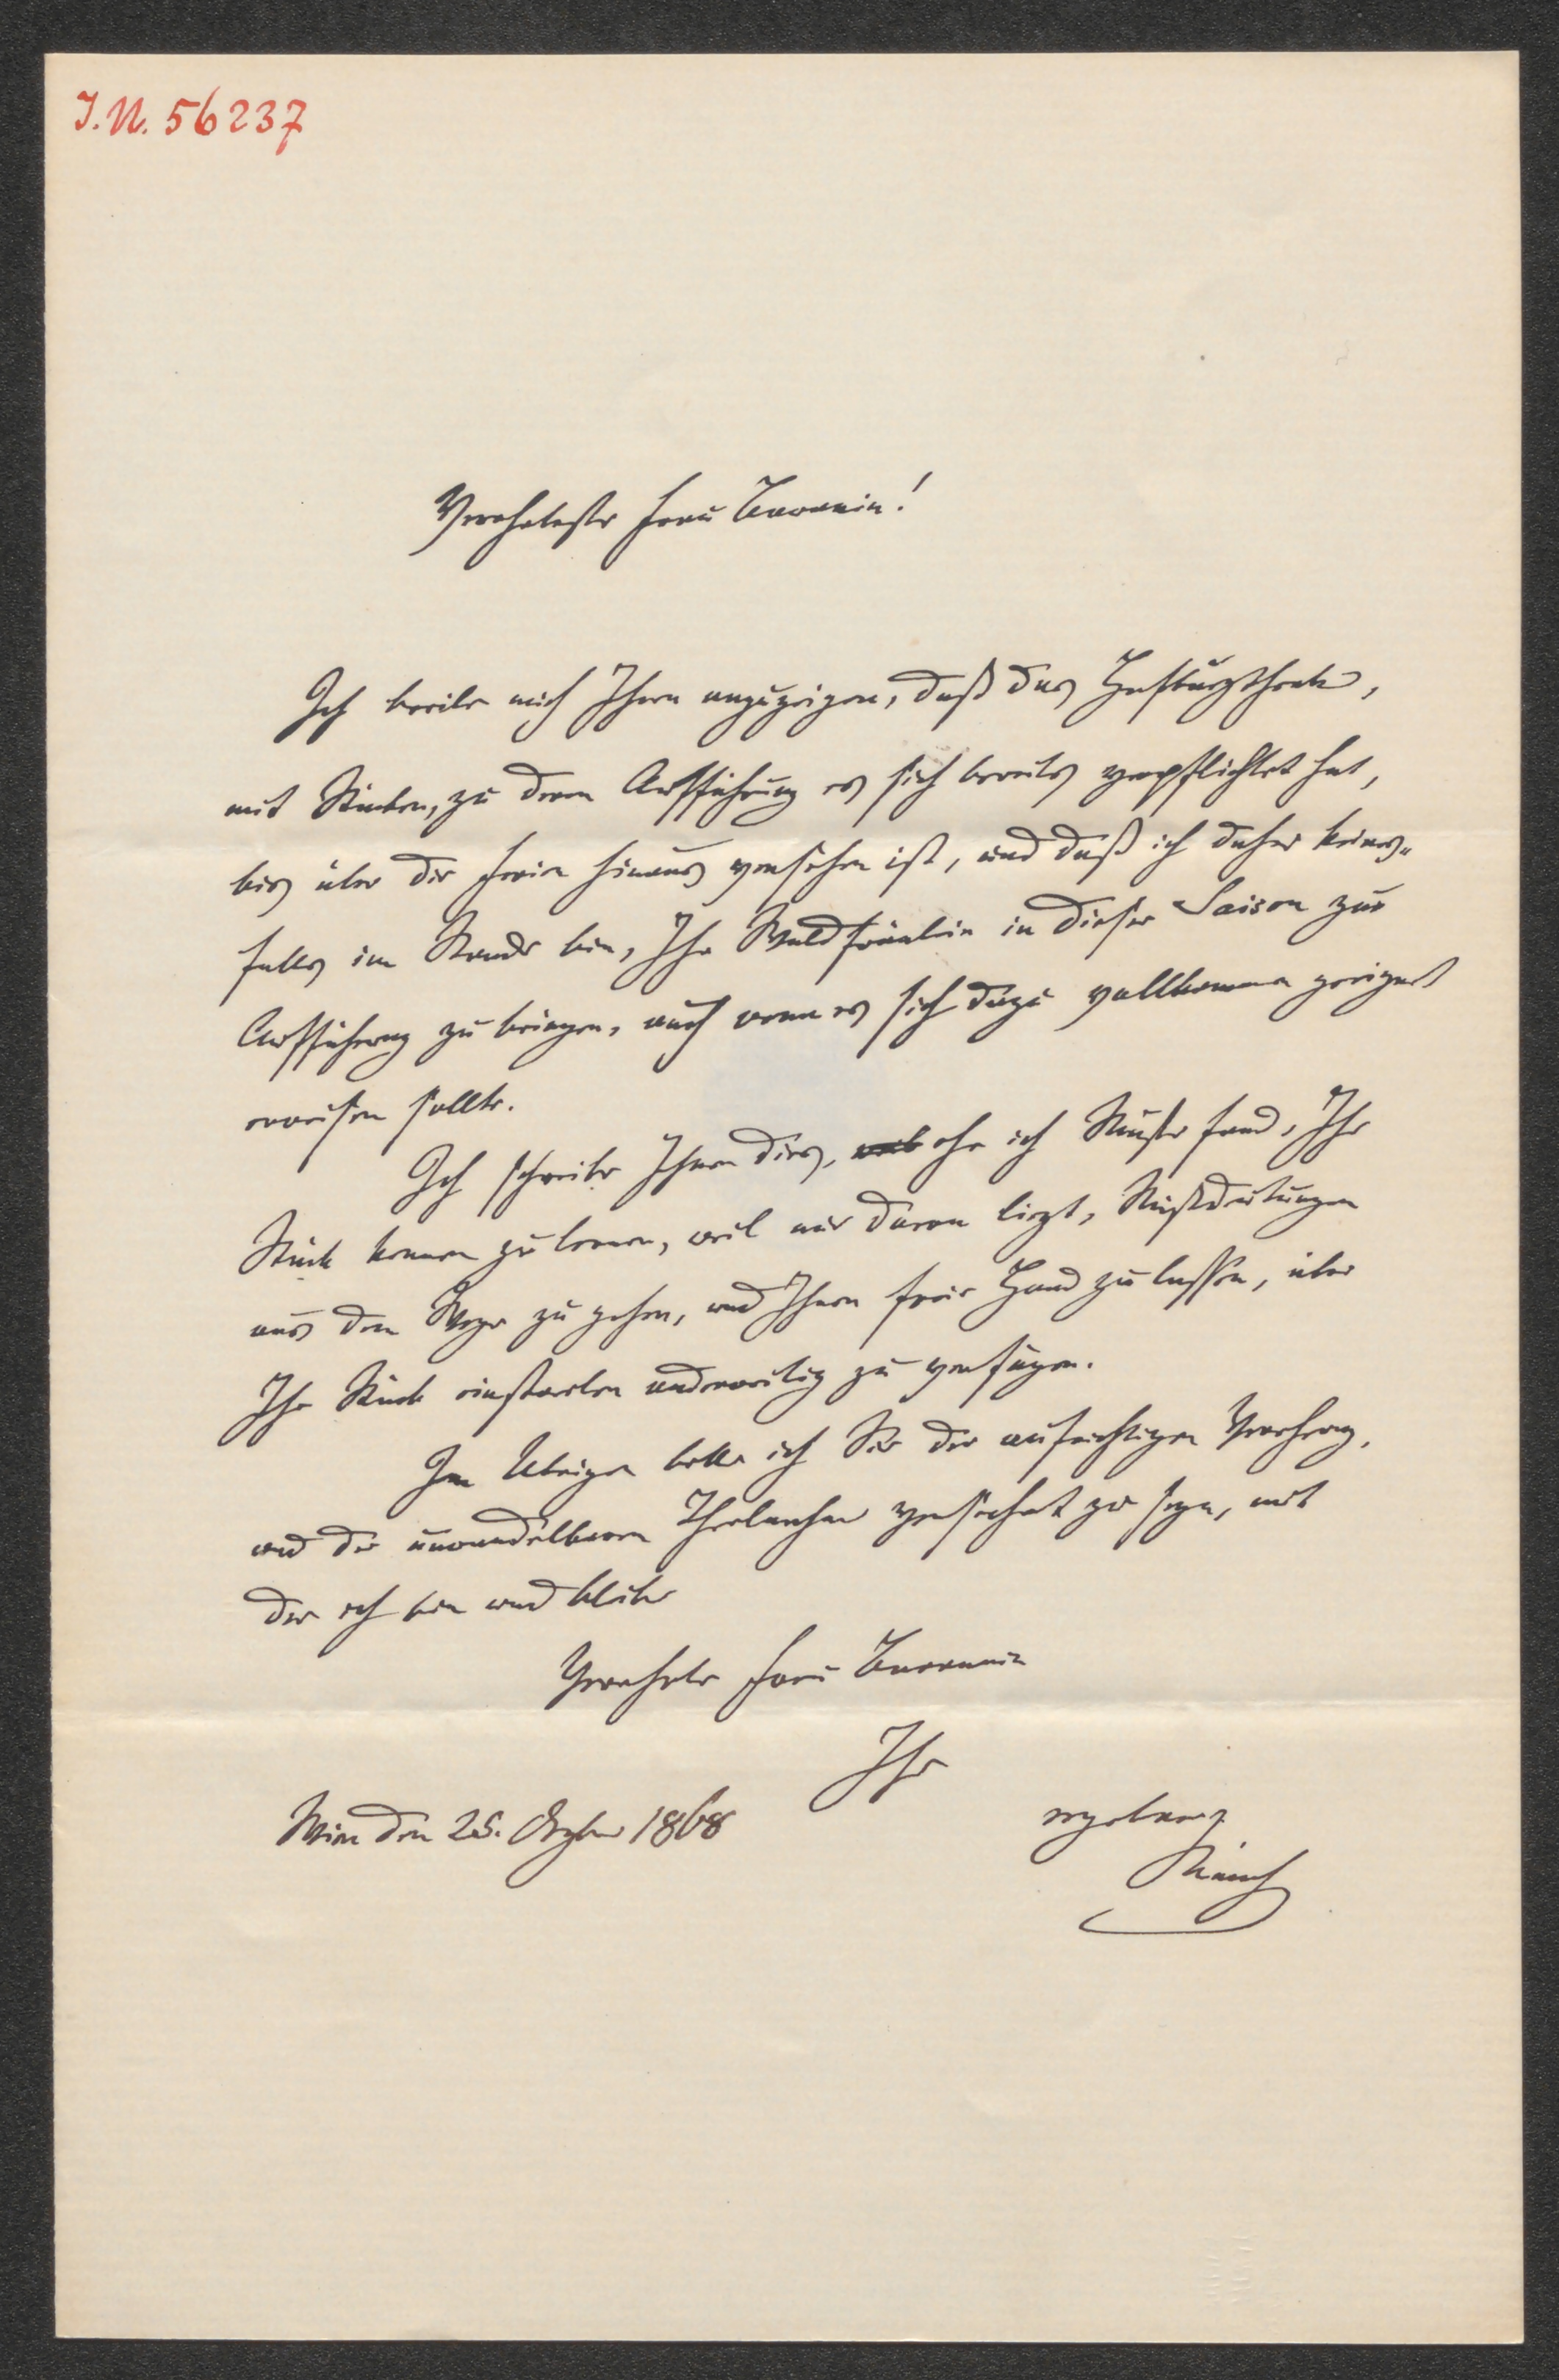 I.N. 56237
Verehrteste Frau Baronin!
Ich beeile mich Ihnen anzuzeigen, daß das Hofburgtheater,
mit Stücken, zu deren Aufführung es sich bereits verpflichtet hat,
bis über die Ferien hinaus versehen ist, und daß ich daher keines-
falls im Stande bin, Ihr Waldfräulein in dieser Saison zur
Aufführung zu bringen, auch wenn es sich dazu vollkommen geeignet
erweisen sollte.
Ich schreibe Ihnen dies, ehe ich Muße fand, Ihr
Stück kennen zu lernen, weil mir daran liegt, Mißdeutungen
aus dem Wege zu gehen, und Ihnen freie Hand zu lassen, über
Ihr Stück einstweilen anderweitig zu verfügen.
Im Übrigen bitte ich Sie der aufrichtigen Verehrung,
und der unwandelbaren Theilnahme versichert zu seyn, mit
der ich bin und bleibe
Verehrte Frau Baronin
Ihr
Wien den 25. 1868
ergebener
Münch